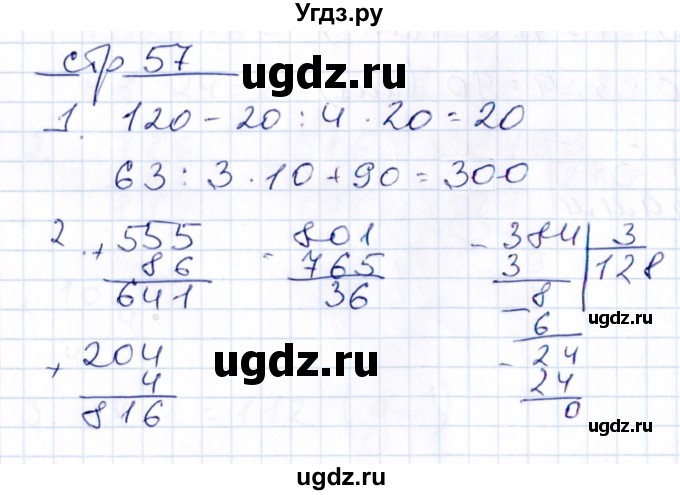 Угдз.ру
стр 57
ugdz.ru
1. 120 - 20 : 4 · 20 = 20
63 : 3 · 10 + 90 = 300
2. + 555
86
641
- 801
765
36
- 384 3
3 128
- 8
6
- 24
24
0
+ 204
4
816
ugdz.ru
ugdz.ru
ugdz.ru
ugdz.ru
ugdz.ru